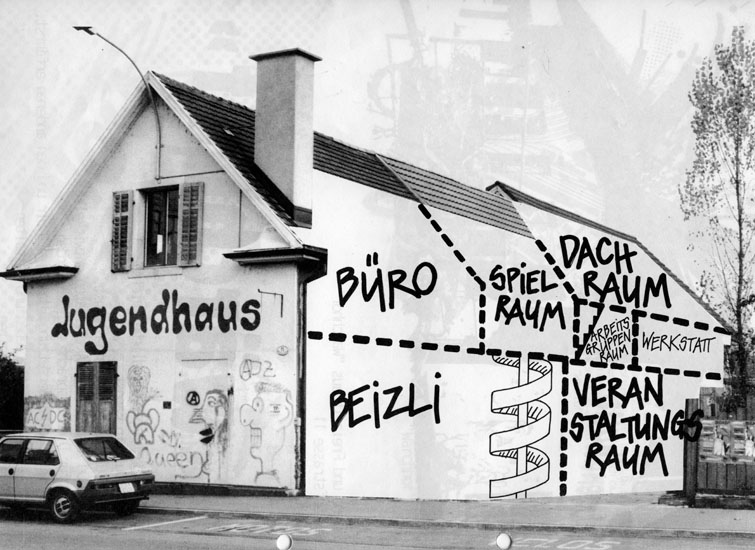 Jugendhaus
AC/DC
Queen
BÜRO
SPIEL
RAUM
DACH
RAUM
ARBEITS
GRUPPEN
RAUM
WERKSTATT
BEIZLI
VERAN
STALTUNGS
RAUM